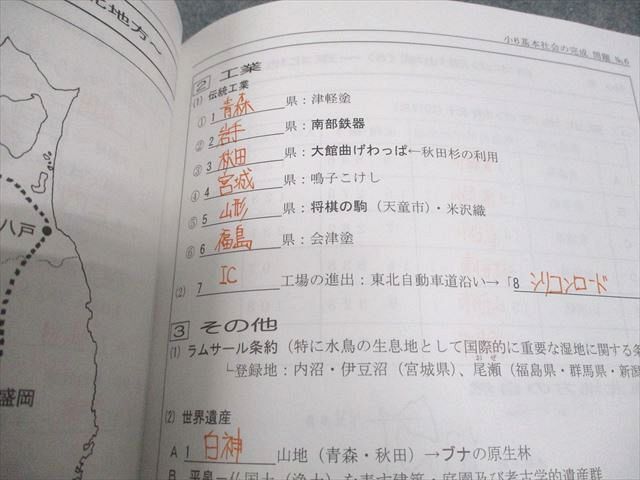 北地方～
八戸
盛岡
小6基本社会の完成 問題 №6
2 工業
(1) 伝統工業
① 1 青森 県：津軽塗
② 2 岩手 県：南部鉄器
③ 3 秋田 県：大館曲げわっぱ←秋田杉の利用
④ 4 宮城 県：鳴子こけし
⑤ 5 山形 県：将棋の駒（天童市）・米沢織
⑥ 6 福島 県：会津塗
(2) 7 IC 工場の進出：東北自動車道沿い→「8 シリコンロード
3 その他
(1) ラムサール条約（特に水鳥の生息地として国際的に重要な湿地に関する条
おぜ
└登録地：内沼・伊豆沼（宮城県）、尾瀬（福島県・群馬県・新潟
(2) 世界遺産
A 1 白神 山地（青森・秋田）→ブナの原生林
B 平泉－仏国土（浄土）を表す建築・庭園及び考古学的遺産群